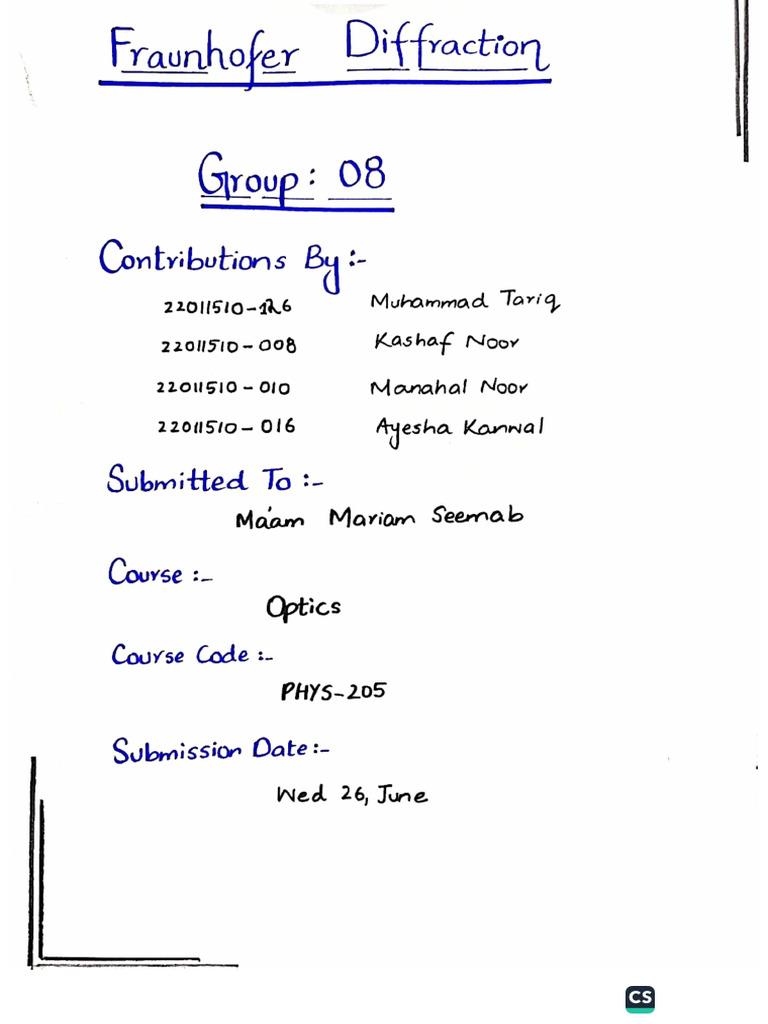 Fraunhofer Diffraction
Group: 08
Contributions By:-
22011510-126 Muhammad Tariq
22011510-008 Kashaf Noor
22011510-010 Manahal Noor
22011510-016 Ayesha Kanwal
Submitted To :-
Ma'am Mariam Seemab
Course :-
Optics
Course Code :-
PHYS-205
Submission Date:-
Wed 26, June
CS